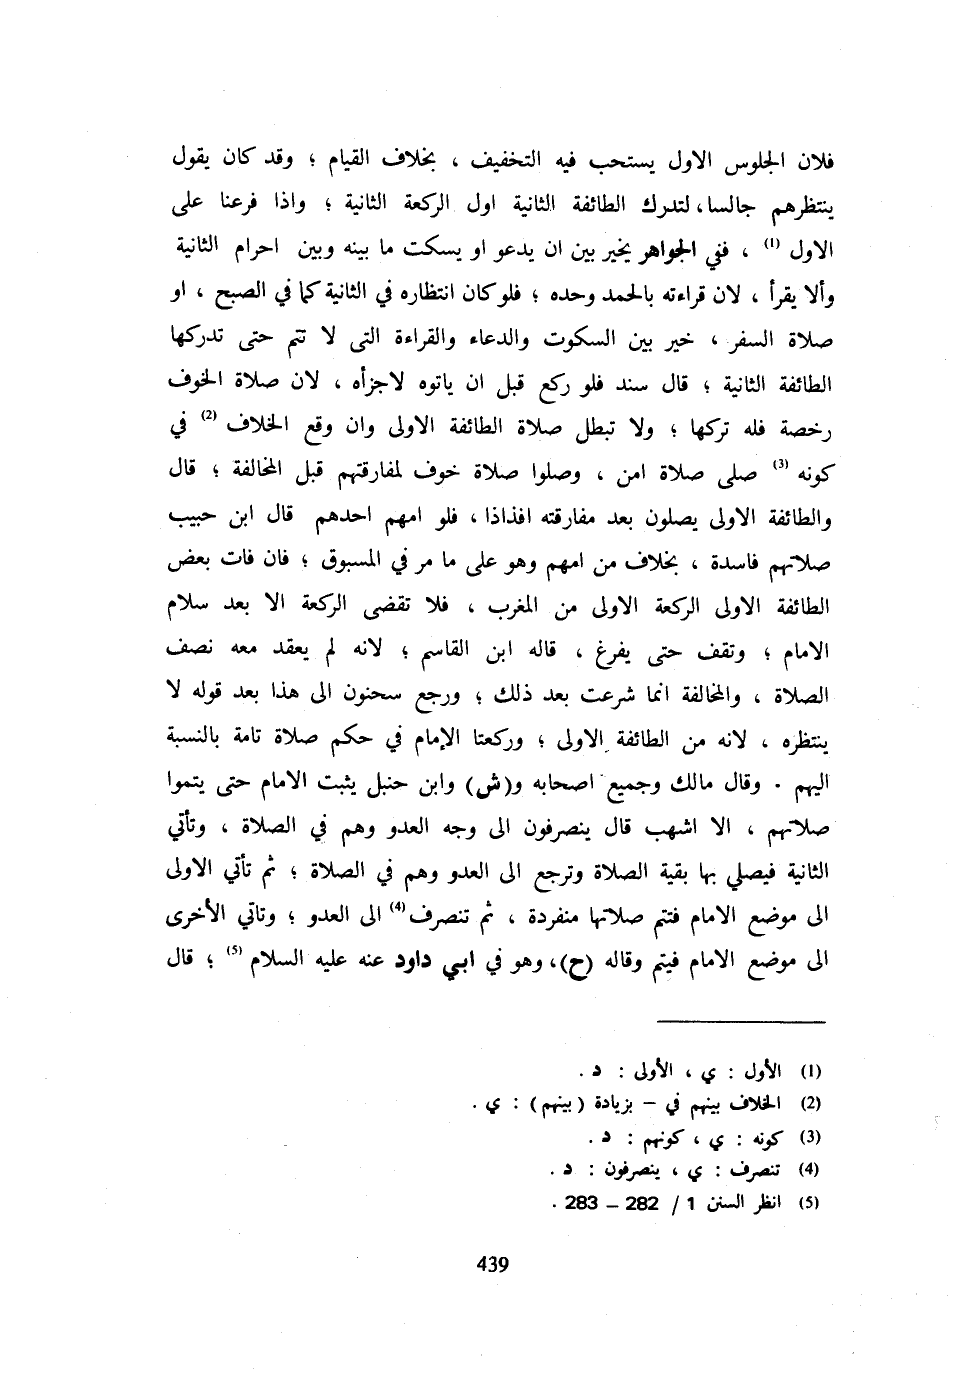 فلان الجلوس الاول يستحب فيه التخفيف ، بخلاف القيام ؛ وقد كان يقول
ينتظرهم جالسا، لتدرك الطائفة الثانية اول الركعة الثانية ؛ واذا فرعنا على
الاول (1) ، ففي الجواهر يخير بين ان يدعو او يسكت ما بينه وبين احرام الثانية
وألا يقرأ ، لان قراءته بالحمد وحده ؛ فلو كان انتظاره في الثانية كما في الصبح ، او
صلاة السفر ، خير بين السكوت والدعاء والقراءة التى لا تتم حتى تدركها
الطائفة الثانية ؛ قال سند فلو ركع قبل ان ياتوه لاجزأه ، لان صلاة الخوف
رخصة فله تركها ؛ ولا تبطل صلاة الطائفة الاولى وان وقع الخلاف (2) في
كونه (3) صلى صلاة امن ، وصلوا صلاة خوف لمفارقتهم قبل المخالفة ؛ قال
والطائفة الاولى يصلون بعد مفارقته افذاذا ، فلو امهم احدهم قال ابن حبيب
صلاتهم فاسدة ، بخلاف من امهم وهو على ما مر في المسبوق ؛ فان فات بعض
الطائفة الاولى الركعة الاولى من المغرب ، فلا تقضى الركعة الا بعد سلام
الامام ؛ وتقف حتى يفرغ ، قاله ابن القاسم ؛ لانه لم يعقد معه نصف
الصلاة ، والمخالفة انما شرعت بعد ذلك ؛ ورجع سحنون الى هذا بعد قوله لا
ينتظره ، لانه من الطائفة الاولى ؛ وركعتا الإمام في حكم صلاة تامة بالنسبة
اليهم . وقال مالك وجميع اصحابه و(ش) وابن حنبل يثبت الامام حتى يتموا
صلاتهم ، الا اشهب قال ينصرفون الى وجه العدو وهم في الصلاة ، وتأتي
الثانية فيصلي بها بقية الصلاة وترجع الى العدو وهم في الصلاة ؛ ثم تأتي الاولى
الى موضع الامام فتتم صلاتها منفردة ، ثم تنصرف (4) الى العدو ؛ وتاتي الأخرى
الى موضع الامام فيتم وقاله (ح)، وهو في ابي داود عنه عليه السلام (5) ؛ قال
(1) الأول : ي ، الأولى : د .
(2) الخلاف بينهم في – بزيادة (بينهم) : ي .
(3) كونه : ي ، كونهم : د .
(4) تنصرف : ي ، ينصرفون : د .
(5) انظر السنن 1 / 282 – 283 .
439